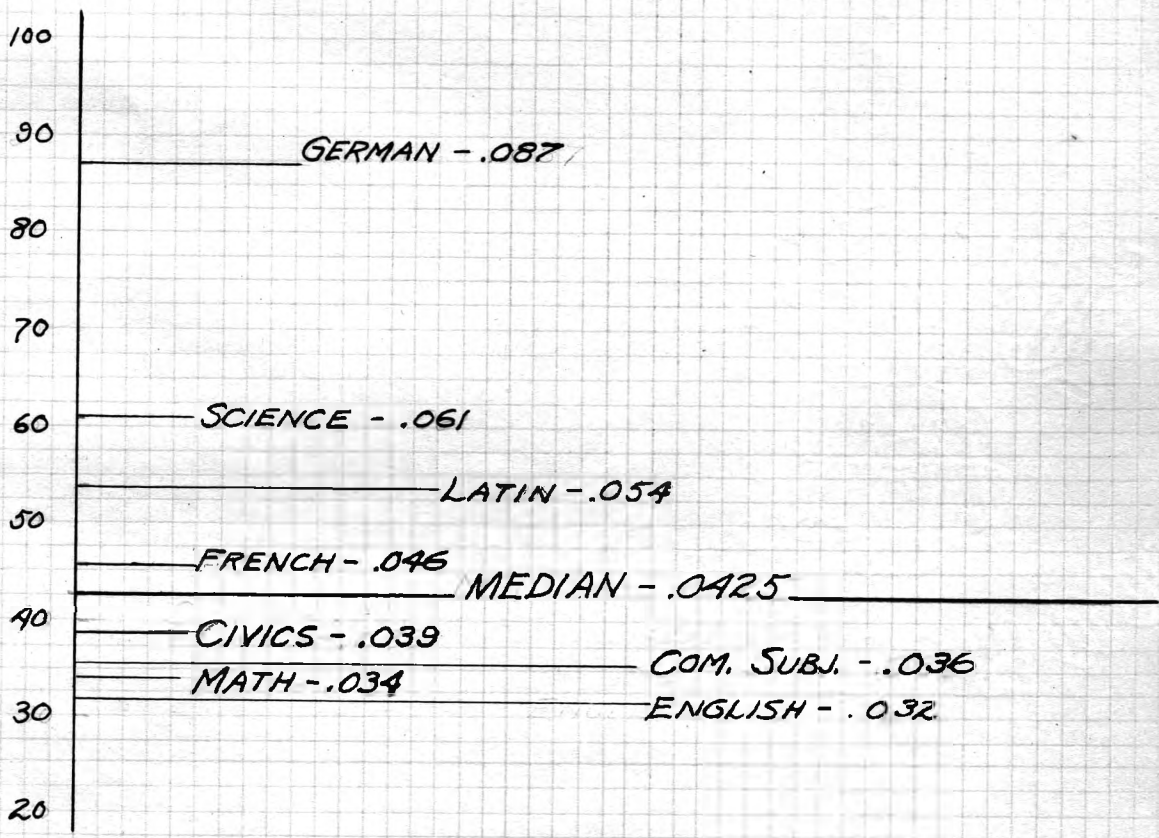 100
90
GERMAN - .087
80
70
60
SCIENCE - .061
LATIN - .054
50
FRENCH - .046
MEDIAN - .0425
40
CIVICS - .039
COM. SUBJ. - .036
MATH - .034
30
ENGLISH - .032
20